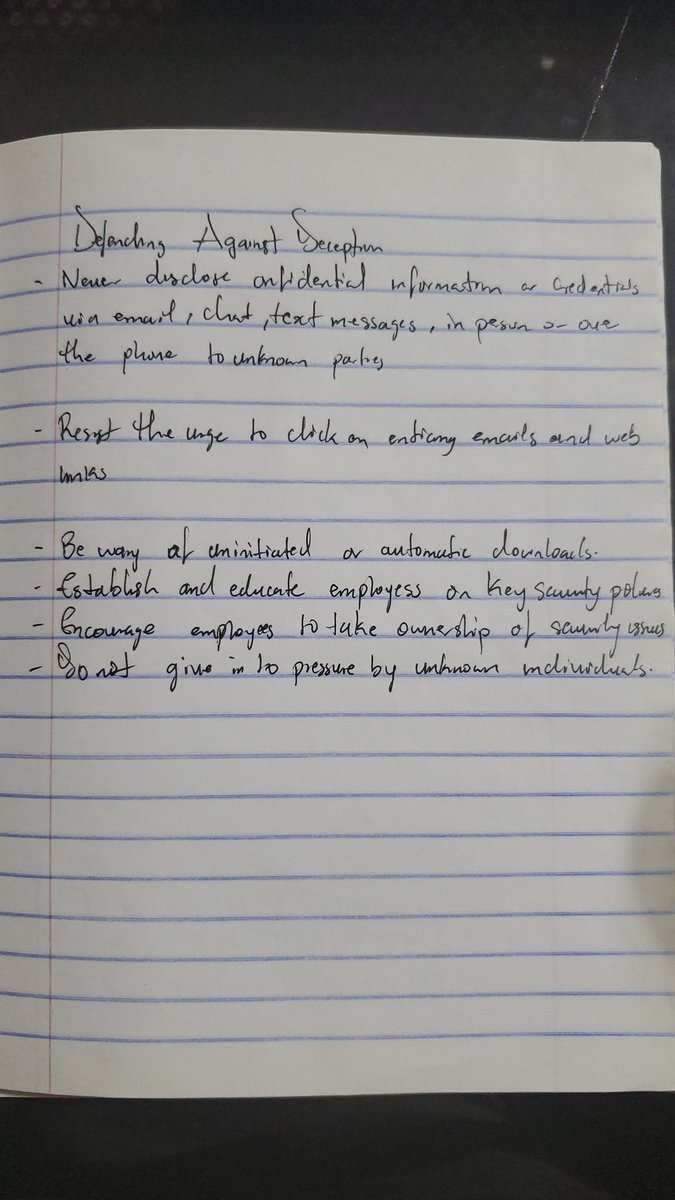 Defending Against Deception
- Never disclose confidential information or credentials
via email, chat, text messages, in person or over
the phone to unknown parties
- Resist the urge to click on enticing emails and web
links
- Be wary of uninitiated or automatic downloads.
- Establish and educate employess on key security policies
- Encourage employees to take ownership of security issues
- Do not give in to pressure by unknown individuals.